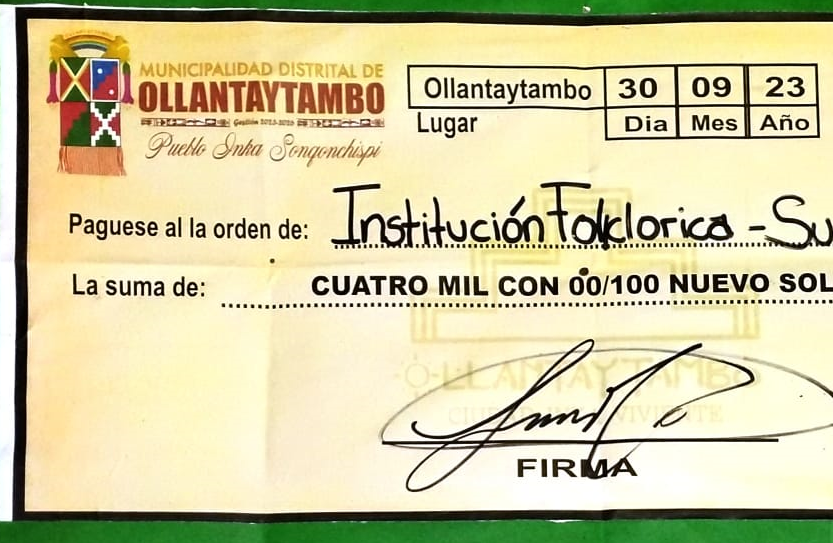 MUNICIPALIDAD DISTRITAL DE
OLLANTAYTAMBO
Gestión 2023-2026
Pueblo Inka Songonchispi
Ollantaytambo 30 09 23
Lugar Dia Mes Año
Paguese al la orden de: Institución Folklorica - Su
La suma de: CUATRO MIL CON 00/100 NUEVO SOL
OLLANTAYTAMBO
VIVIENTE
FIRMA